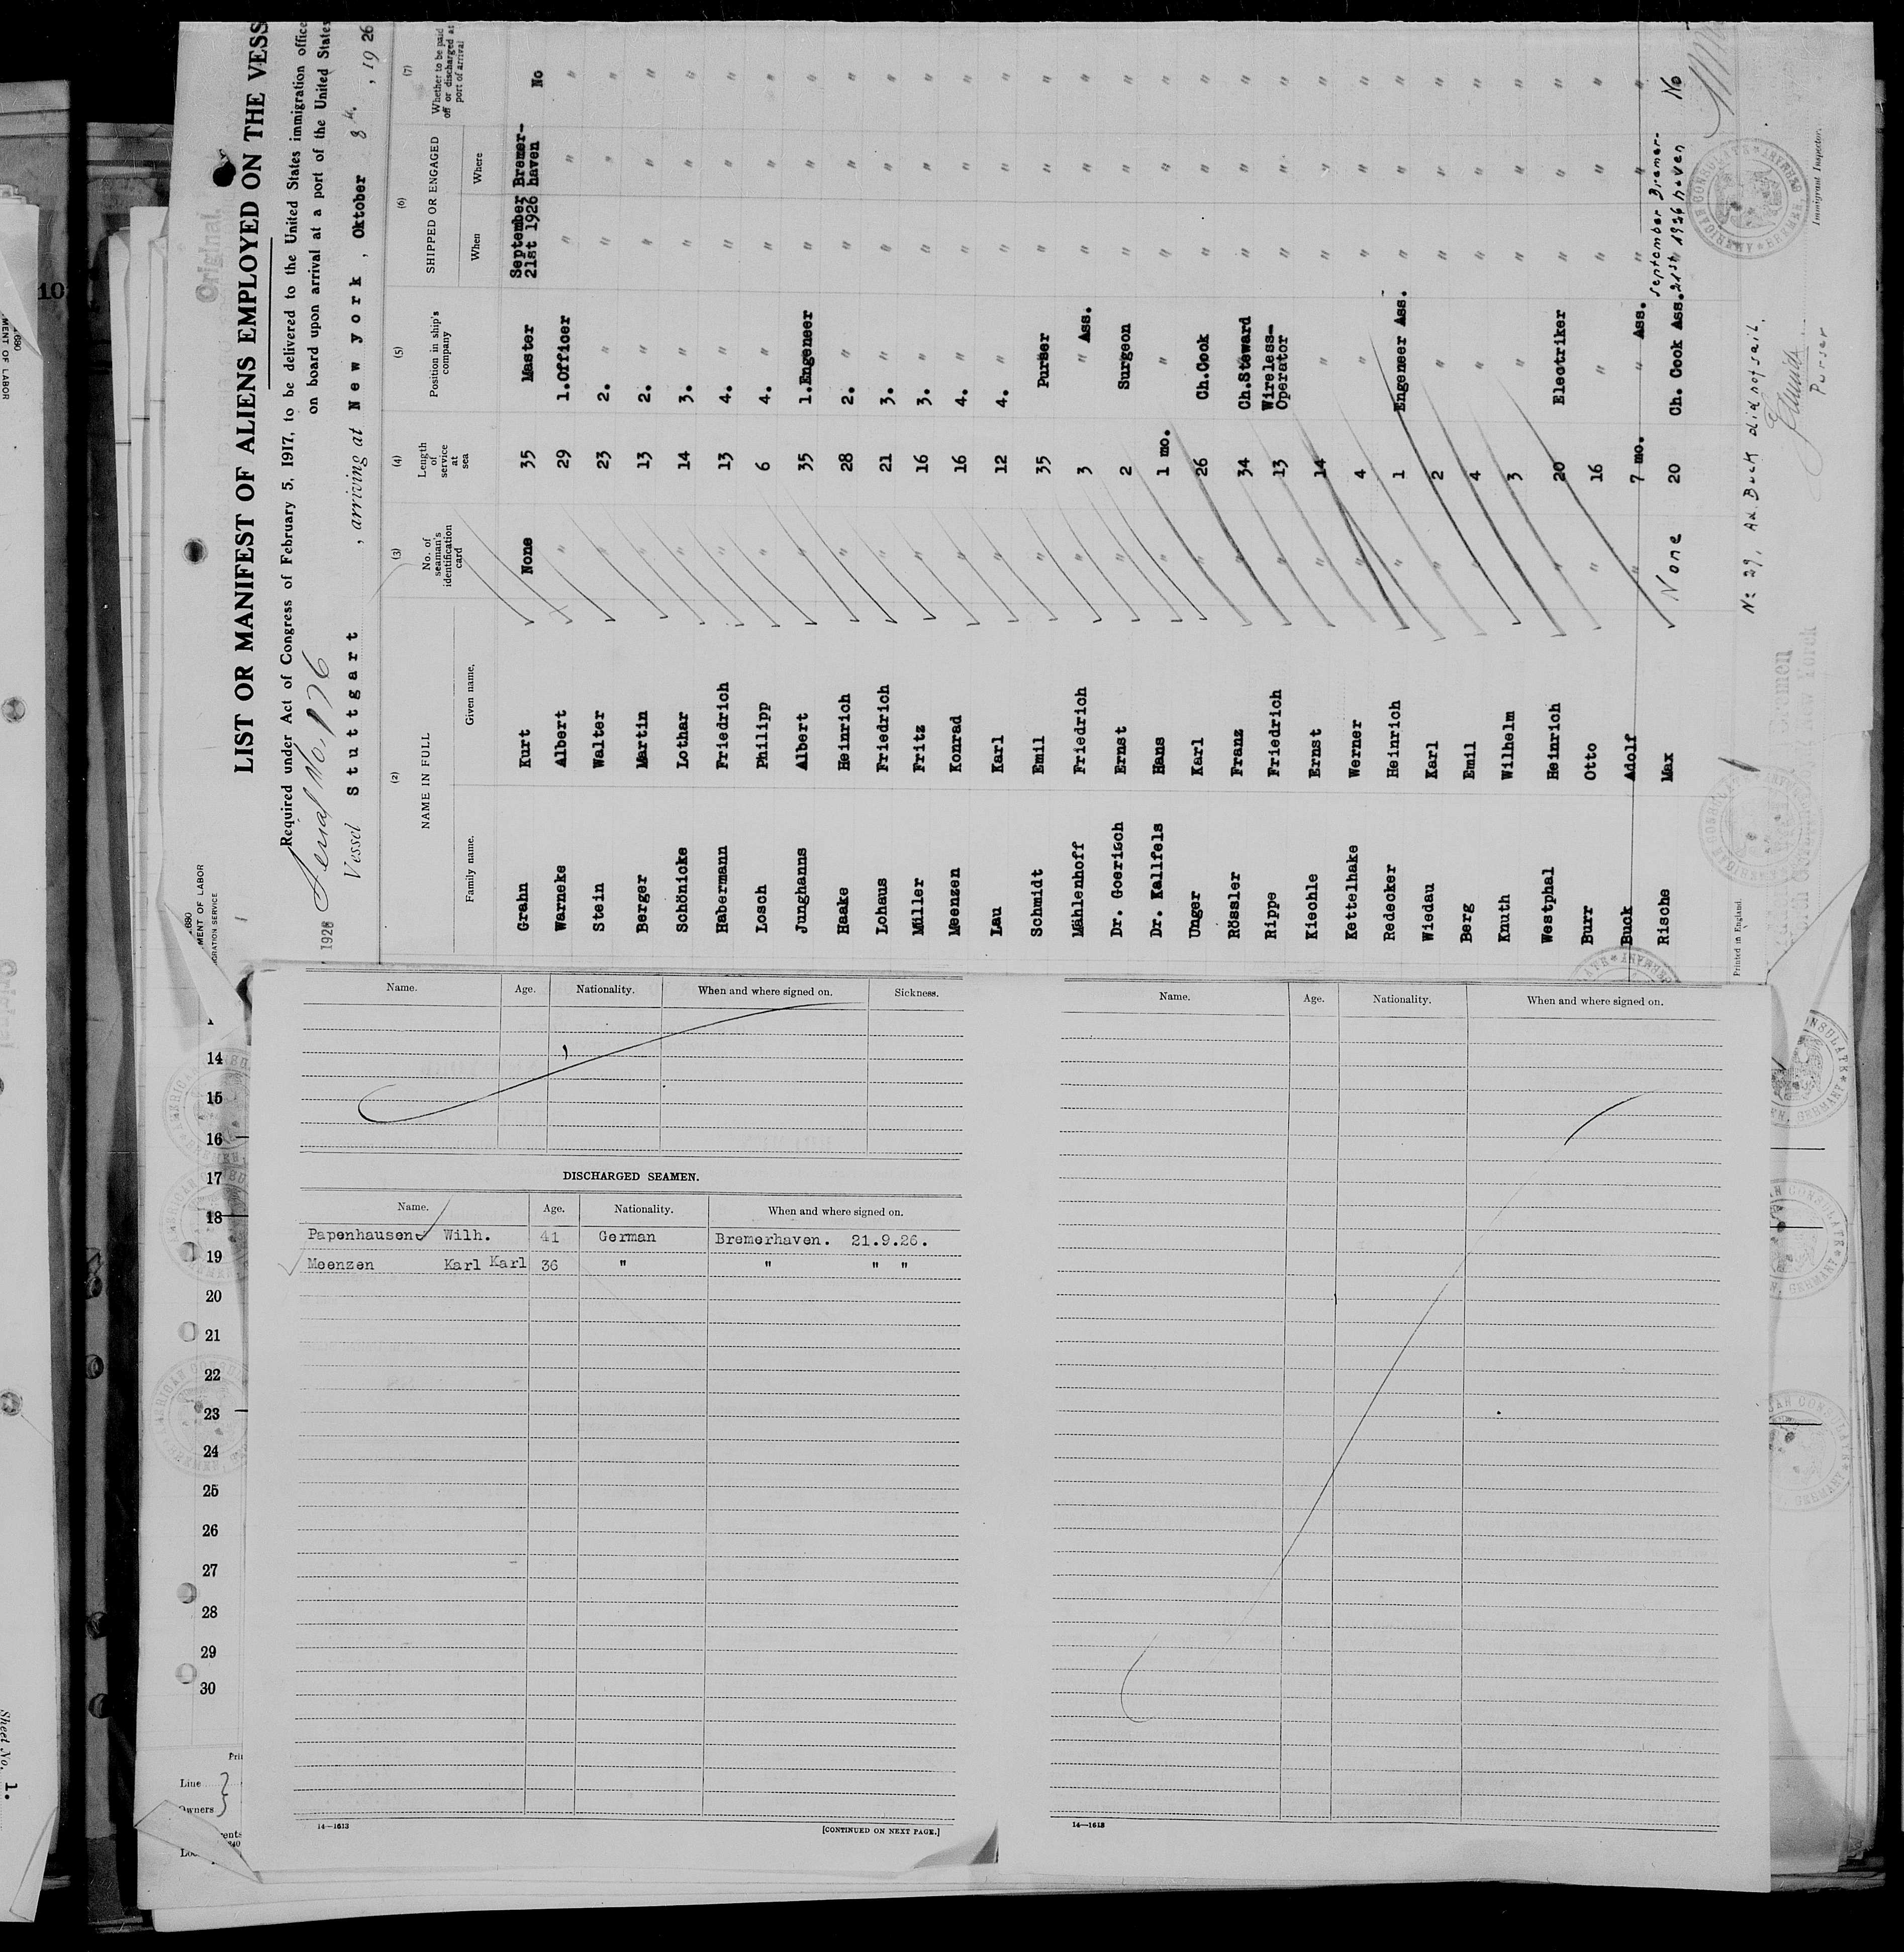 Original.
LIST OR MANIFEST OF ALIENS EMPLOYED ON THE VESS
Required under Act of Congress of February 5, 1917, to be delivered to the United States immigration office
on board upon arrival at a port of the United States
MENT OF LABOR
GRATION SERVICE
1926
Serial No. 1776
Vessel Stuttgart , arriving at New york , Oktober 8th. , 1926
(2) (3) (4) (5) (6) (7)
NAME IN FULL
Family name. Given name.
No. of seaman's identification card
Length of service at sea
Position in ship's company
SHIPPED OR ENGAGED
When Where
Whether to be paid off or discharged at port of arrival
Grahn Kurt None 35 Master September 21st 1926 Bremer-haven No
Warneke Albert " 29 1.Officer " " "
Stein Walter " 23 2. " " " "
Berger Martin " 13 2. " " " "
Schönicke Lothar " 14 3. " " " "
Habermann Friedrich " 13 4. " " " "
Losch Philipp " 6 4. " " " "
Junghanns Albert " 35 1.Engeneer " " "
Haake Heinrich " 28 2. " " " "
Lohaus Friedrich " 21 3. " " " "
Müller Fritz " 16 3. " " " "
Meenzen Konrad " 16 4. " " " "
Lau Karl " 12 4. " " " "
Schmidt Emil " 35 Purser " " "
Mählenhoff Friedrich " 3 " Ass. " " "
Dr. Goerisch Ernst " 2 Surgeon " " "
Dr. Kallfels Hans " 1 mo. " " " "
Unger Karl " 26 Ch.Cook " " "
Rössler Franz " 34 Ch.Steward " " "
Rippe Friedrich " 13 Wireless-Operator " " "
Kiechle Ernst " 14 " " " "
Kettelhake Werner " 4 " " " "
Redecker Heinrich " 1 Engeneer Ass. " " "
Wiedau Karl " 2 " " " "
Berg Emil " 4 " " " "
Knuth Wilhelm " 3 " " " "
Westphal Heinrich " 20 Electriker " " "
Burr Otto " 16 " " " "
Buck Adolf " 7 mo. " Ass. " " "
Rische Max None 20 Ch. Cook Ass. September 21st 1926 Bremer-haven No
No 29, Ad. Buck did not sail.
Schmidt
Purser
Immigrant Inspector.
Printed in England.
AMERICAN CONSULATE
BREMEN, GERMANY
Name. Age. Nationality. When and where signed on. Sickness.
DISCHARGED SEAMEN.
Name. Age. Nationality. When and where signed on.
Papenhausen Wilh. 41 German Bremerhaven. 21.9.26.
Meenzen Karl Karl 36 " " " "
14—1613
[CONTINUED ON NEXT PAGE.]
Name. Age. Nationality. When and where signed on.
14—1613
14
15
16
17
18
19
20
21
22
23
24
25
26
27
28
29
30
Line
Owners
10
MENT OF LABOR
Sheet No. 1.